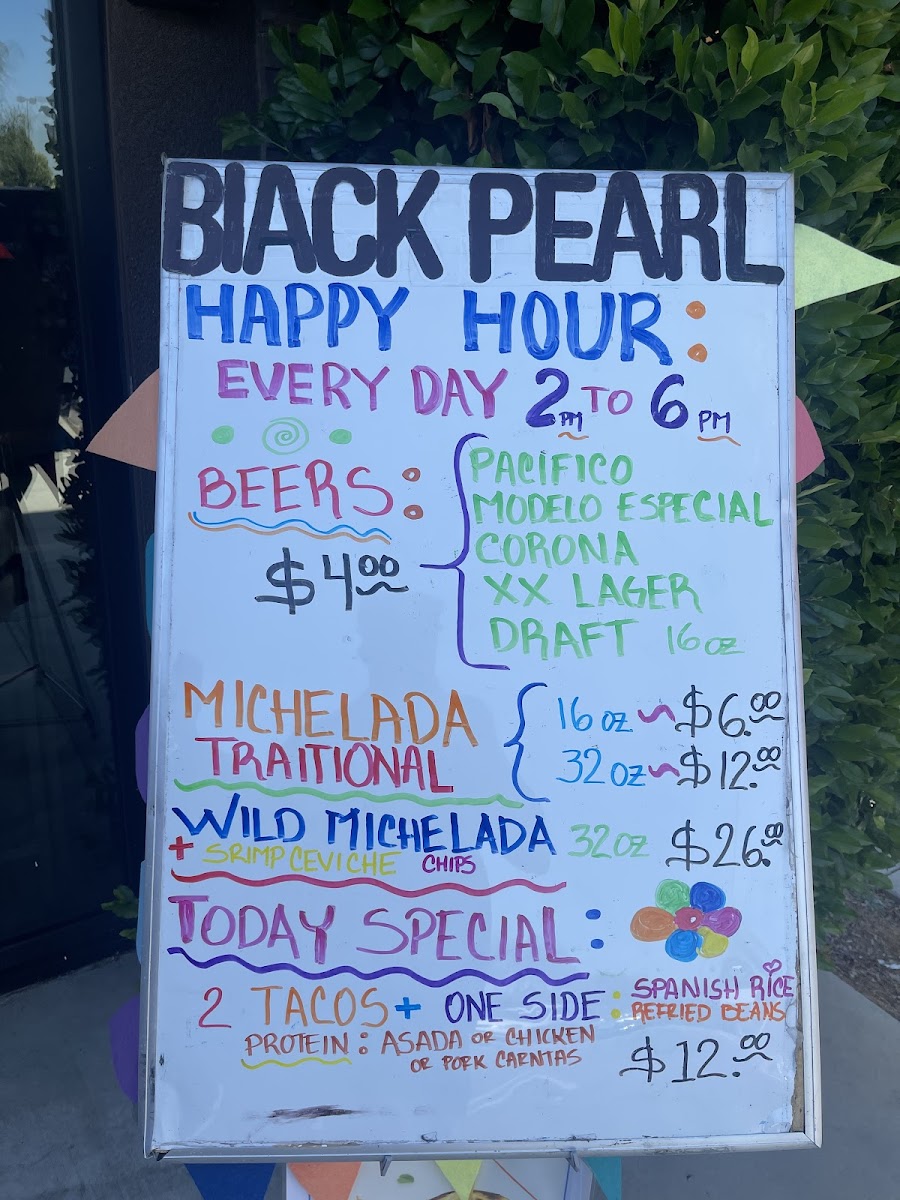 BlACK PEARL
HAPPY HOUR:
EVERY DAY 2PM TO 6PM
BEERS:
$4.00
PACIFICO
MODELO ESPECIAL
CORONA
XX LAGER
DRAFT 16oz
MICHELADA
TRAITIONAL
16oz ~ $6.00
32oz ~ $12.00
WILD MICHELADA 32oz $26.00
+ SRIMP CEVICHE CHIPS
TODAY SPECIAL:
2 TACOS + ONE SIDE: SPANISH RICE
REFRIED BEANS
PROTEIN: ASADA OR CHICKEN
OR PORK CARNTAS
$12.00